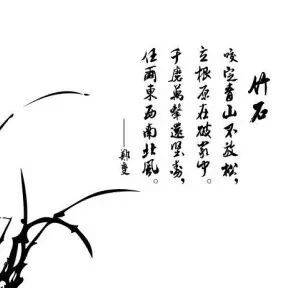 竹石
咬定青山不放松,
立根原在破岩中。
千磨萬擊還堅勁,
任爾東西南北風。
——鄭燮